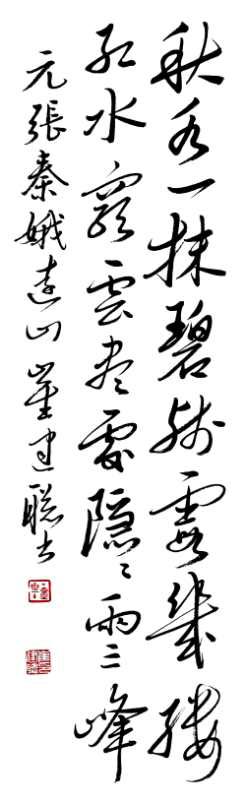 秋水一抹碧殘霞幾縷
紅水窮雲盡處隱々兩三峰
元張秦娥遠山 崔建聰书